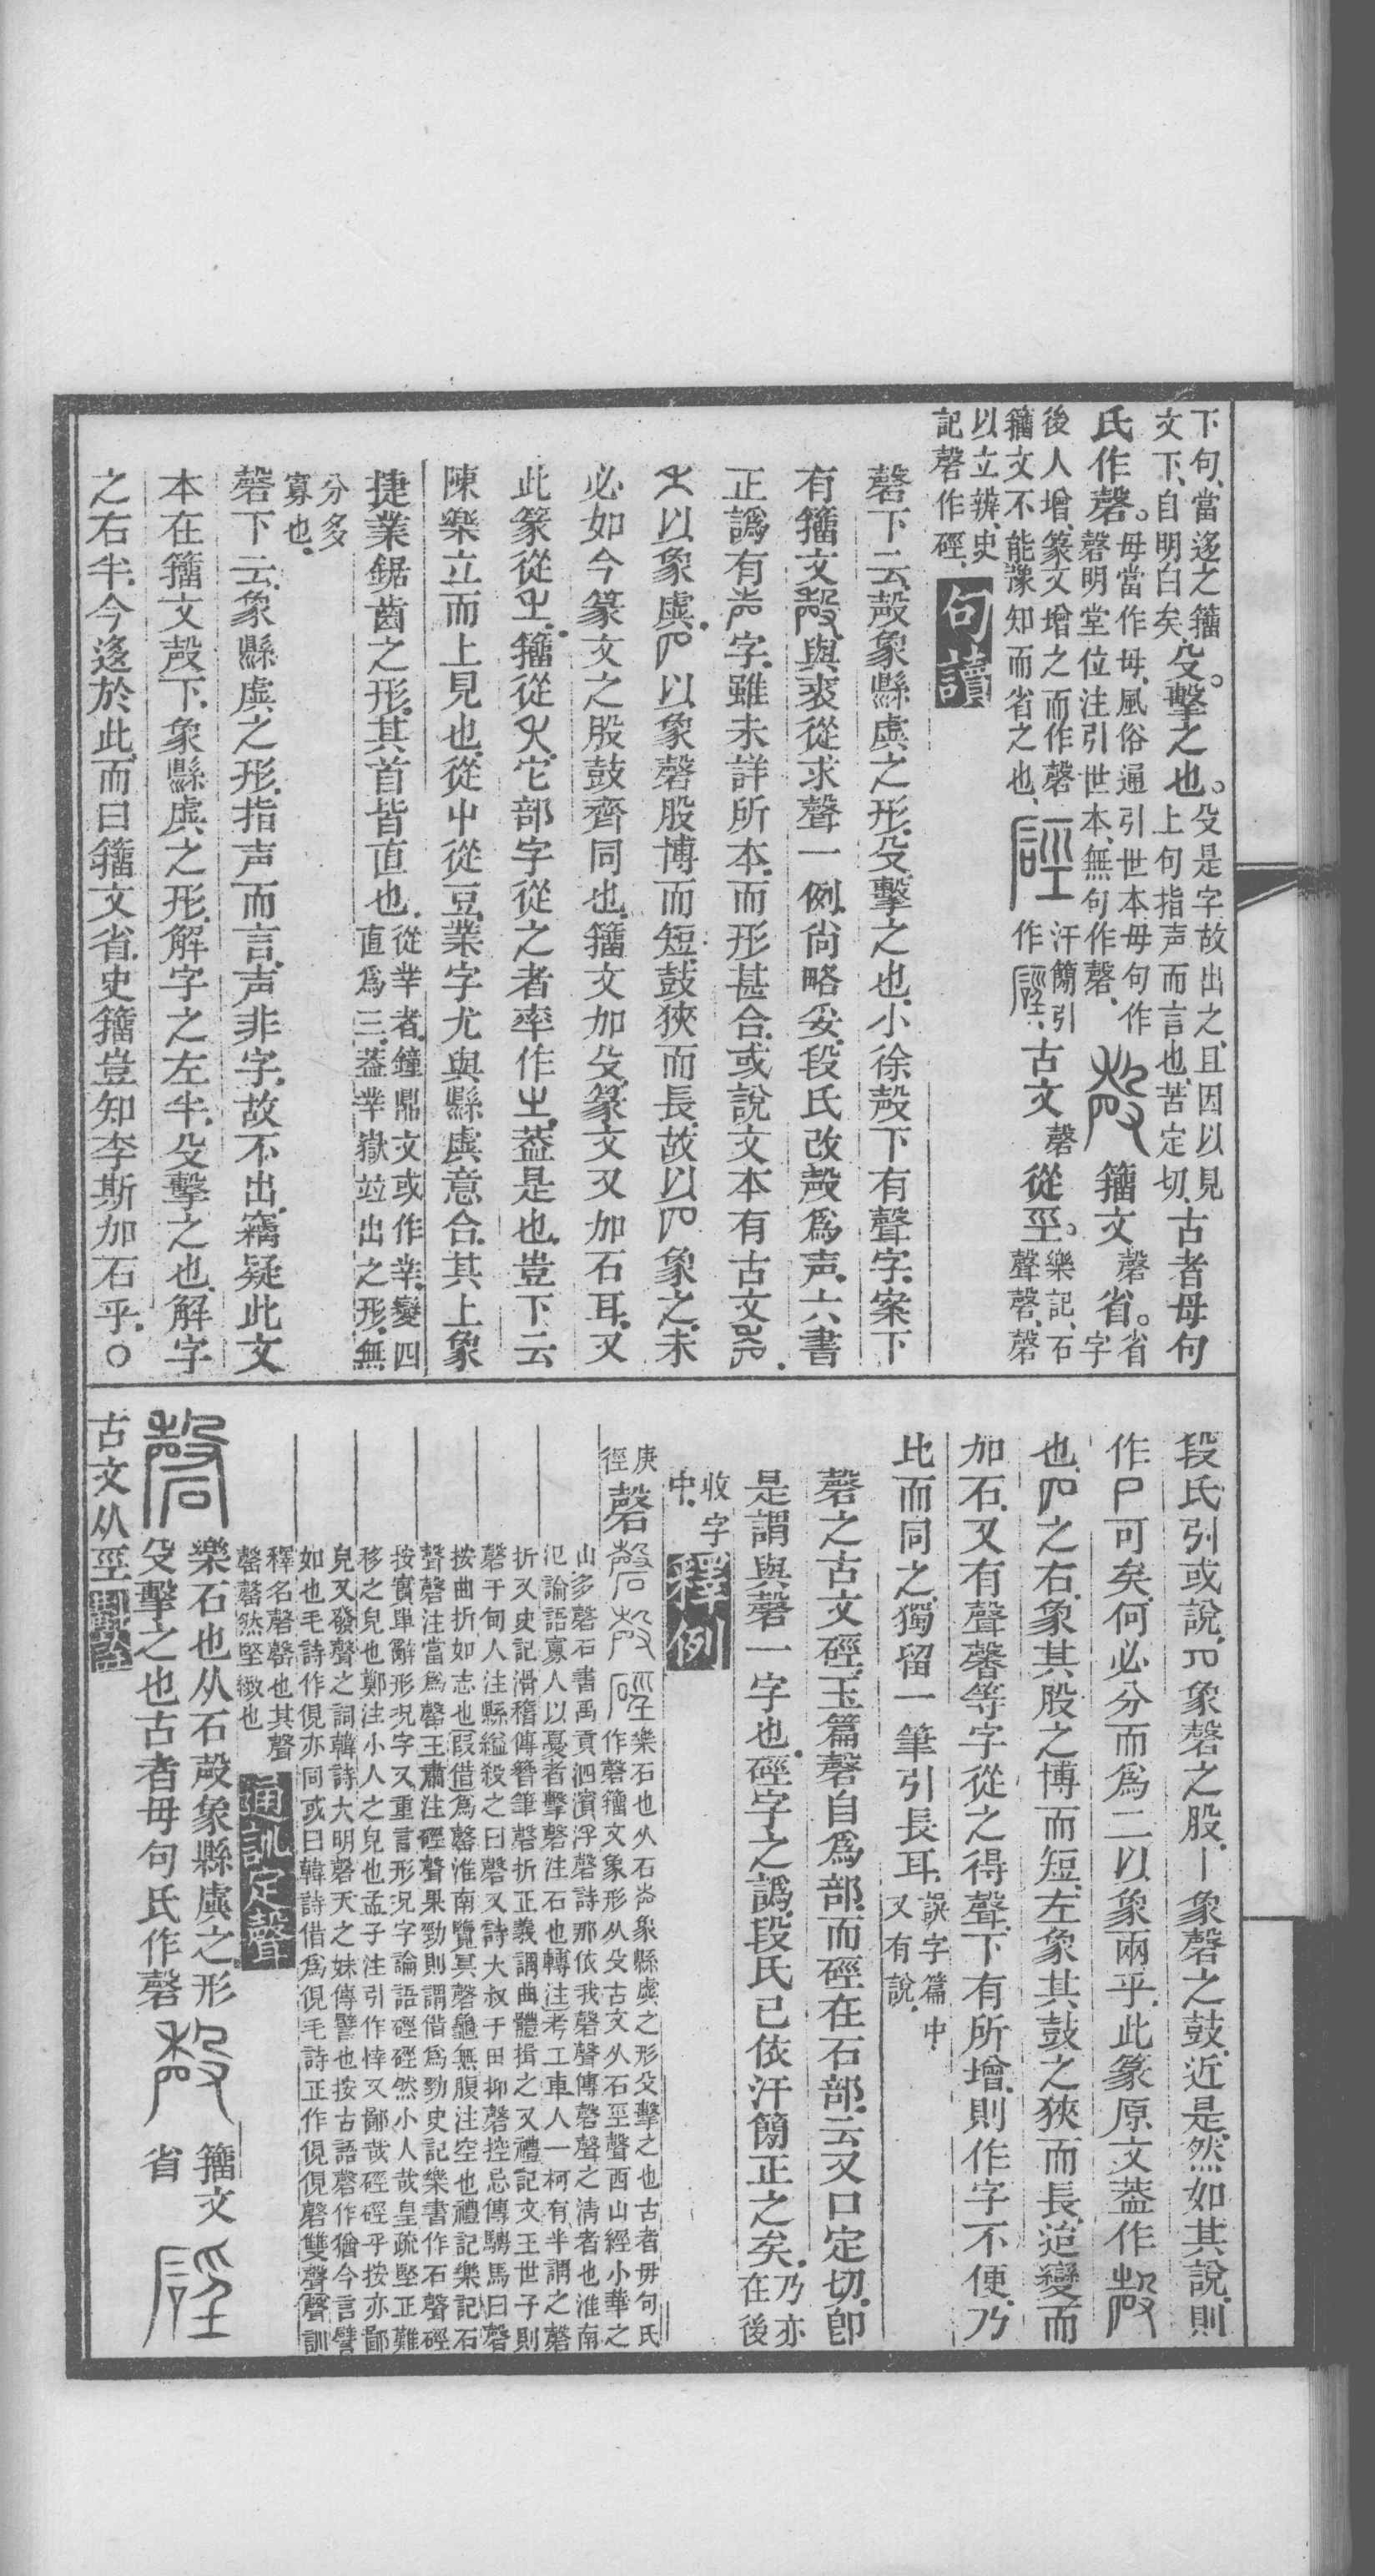 下句、當迻之籒
文下、自明白矣。
殳擊之也。
殳是字、故出之、且因以見
上句指声而言也、苦定切、
古者母句
氏作磬。
母當作毋、風俗通引世本、毋句作
磬、明堂位注引世本、無句作磬、
籒文
磬
省。
省字
後人增、篆文增之而作磬
籒文不能豫知而省之也、
汗簡引
作
古文
磬
從巠。
樂記、石
聲磬、磬
以立辨、史
記磬作硜、
句讀
磬下云、殸象縣虡之形、殳擊之也、小徐殸下有聲字、案下
有籒文殸、與裘從求聲一例、尙略妥、段氏改殸爲声、六書
正譌有声字、雖未詳所本、而形甚合、或說文本有古文
以象虡、以象磬股博而短、鼓狹而長、故以象之、未
必如今篆文之股鼓齊同也、籒文加殳、篆文又加石耳、又
此篆從、籒從、它部字從之者率作、葢是也、豈下云
陳樂立而上見也、從屮從豆、業字尤與縣虡意合、其上象
捷業鋸齒之形、其首皆直也、
從丵者、鐘鼎文或作、變四
直爲三、葢丵嶽竝出之形、無
分多
寡也、
磬下云、象縣虡之形、指声而言、声非字、故不出、竊疑此文
本在籒文殸下、象縣虡之形、解字之左半、殳擊之也、解字
之右半、今迻於此、而曰籒文省、史籒豈知李斯加石乎、○
段氏引或說、象磬之股、丨象磬之鼓、近是、然如其說、則
作可矣、何必分而爲二、以象兩乎、此篆原文葢作
也、之右、象其股之博而短、左象其鼓之狹而長、迨變而
加石、又有聲馨等字從之得聲、下有所增、則作字不便、乃
比而同之、獨留一筆引長耳、
誤字篇中
又有說、
磬之古文硜、玉篇磬自爲部、而硜在石部、云又口定切、卽
是謂與磬一字也、硜字之譌、段氏已依汗簡正之矣、
乃亦
在後
收字
中、
釋例
庚
徑
磬
樂石也从石声象縣虡之形殳擊之也古者毋句氏
作磬籒文象形从殳古文从石巠聲西山經小華之
山多磬石書禹貢泗濱浮磬詩那依我磬聲傳磬聲之淸者也淮南
氾論語寡人以憂者擊磬注石也轉注考工車人一柯有半謂之磬
折又史記滑稽傳簪筆磬折正義謂曲體揖之又禮記文王世子則
磬于甸人注縣縊殺之曰磬又詩大叔于田抑磬控忌傳騁馬曰磬
按曲折如志也叚借爲罄淮南覽冥磬龜無腹注空也禮記樂記石
聲磬注當爲罄王肅注硜聲果勁則謂借爲勁史記樂書作石聲硜
按實單辭形況字又重言形況字論語硜硜然小人哉皇疏堅正難
移之皃也鄭注小人之皃也孟子注引作悻又鄙哉硜硜乎按亦鄙
皃又發聲之詞韓詩大明磬天之妹傳譬也按古語磬作猶今言譬
如也毛詩作俔亦同或曰韓詩借爲俔毛詩正作俔俔磬雙聲聲訓
釋名磬罄也其聲
罄罄然堅緻也
通訓定聲
樂石也从石殸象縣虡之形
殳擊之也古者毋句氏作磬
籒文
省
古文从巠